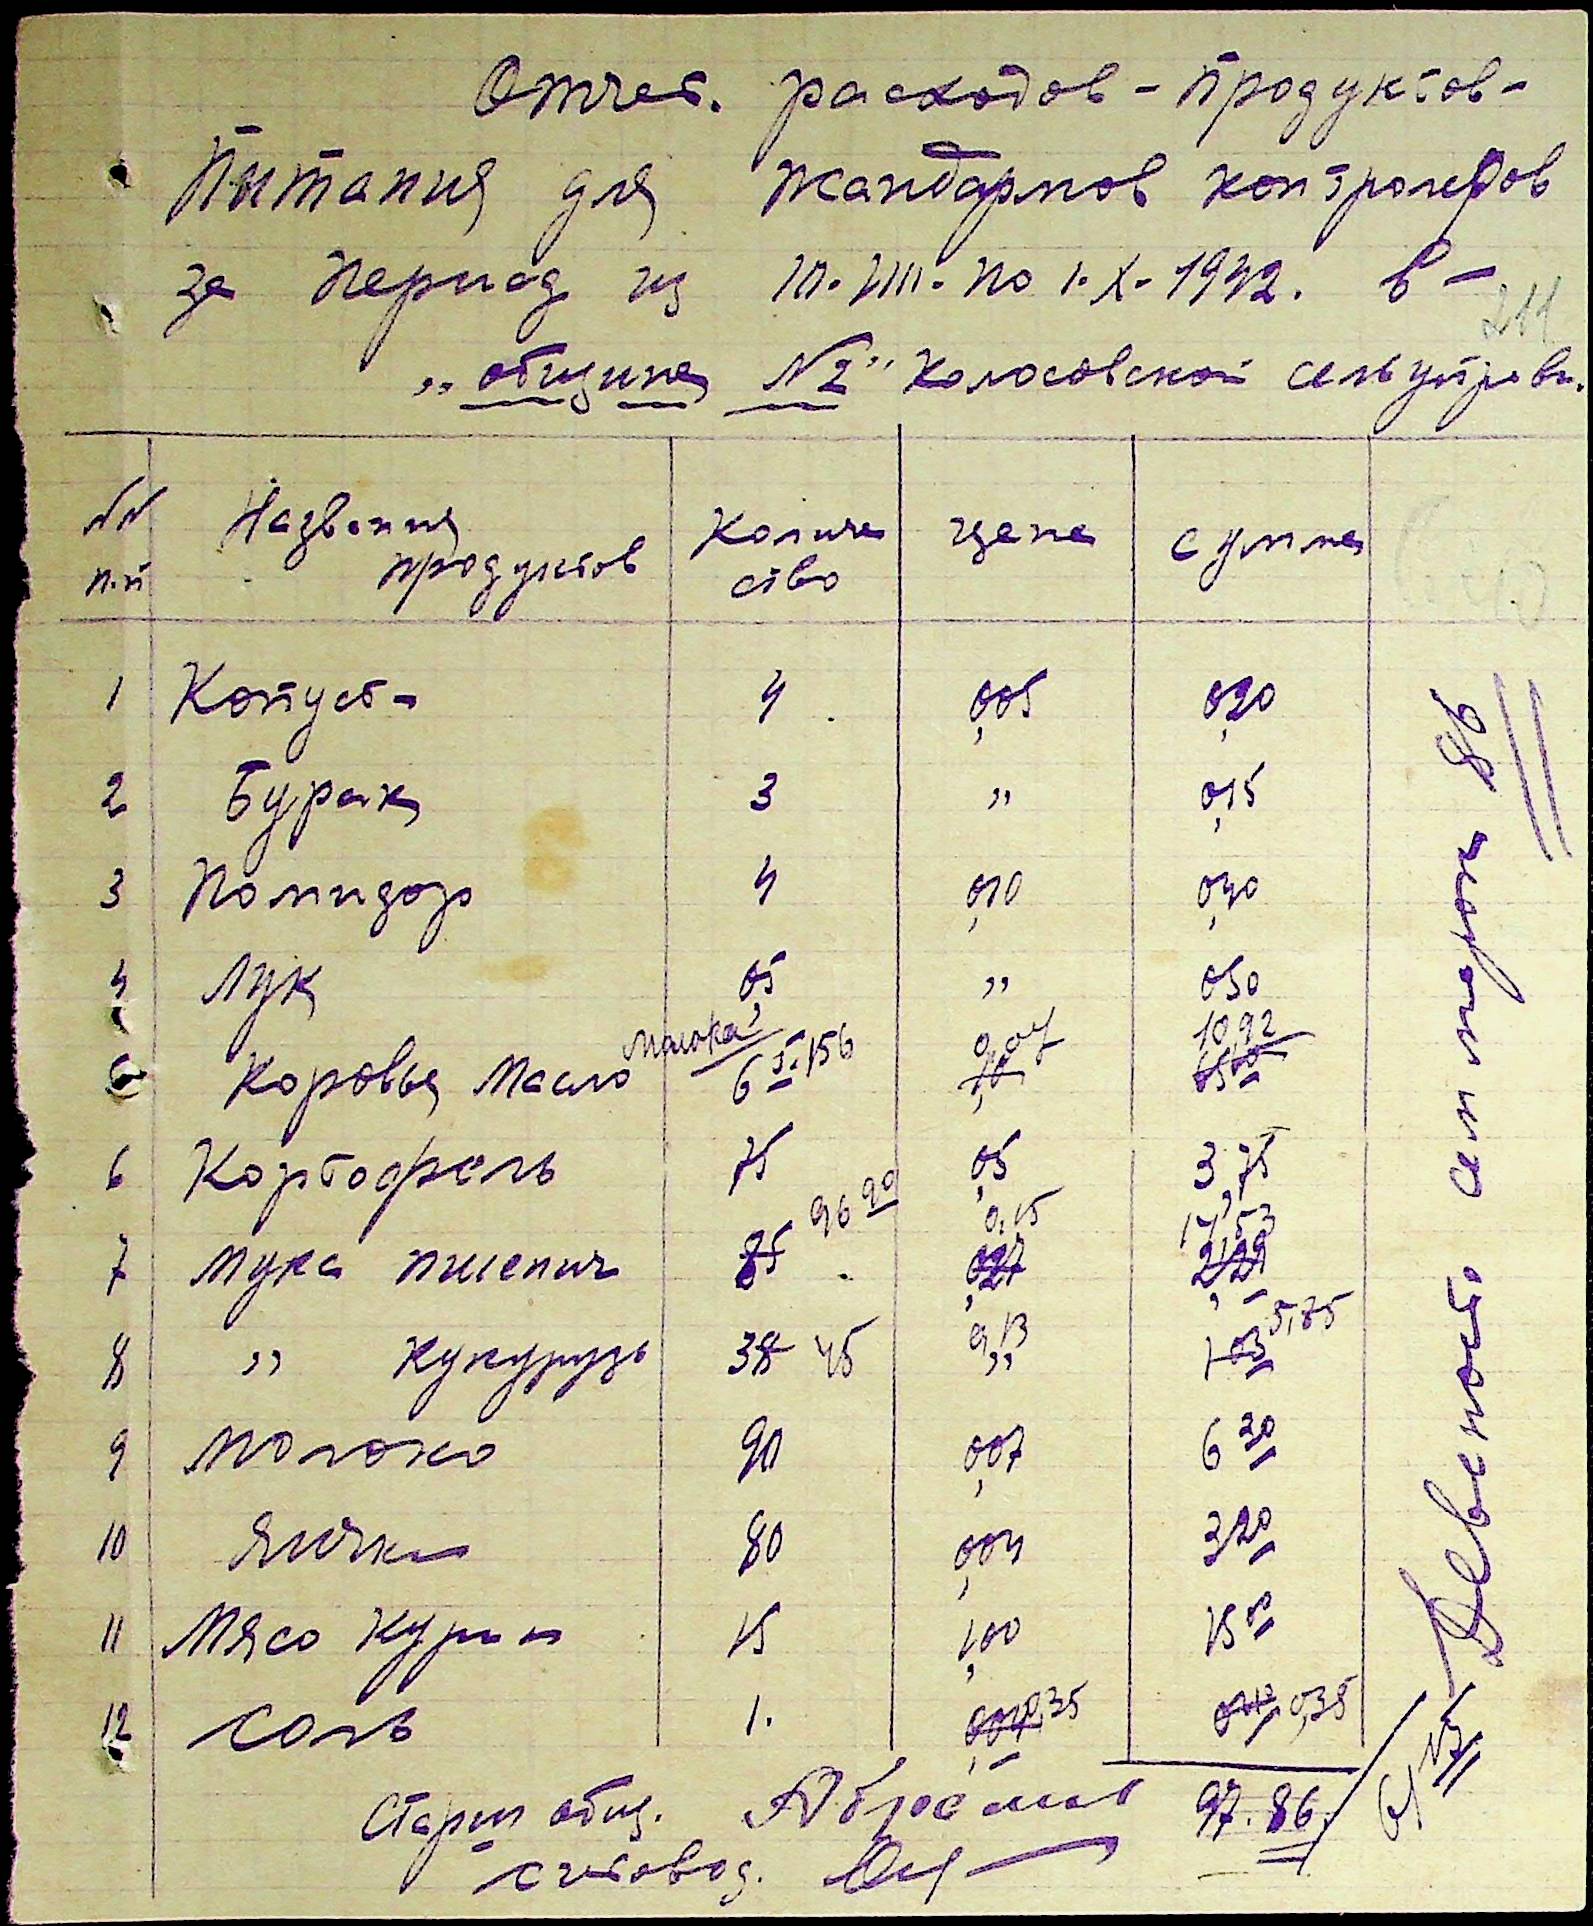 Отчет. расходов - продуктов -
Питания для жандармов контролеров
за период из 10.VIII. по 1.X. 1942. в -
211
„общине № 2" Колосовской сельуправ.
№№ п.п Названия продуктов Количество цена сумма
1 Капуст- 4 0,05 0,20
2 Бурак 3 " 0,15
3 Помидор 4 0,10 0,40
4 Лук 0,5 " 0 50
молока 156 0,07 10,92
5 Коровья Масло 6 5
6 Картофель 75 0,5 3,75
96 90 0,15 14,53
7 Мука пшенич 85 0,27 2,29
8 " кукурузы 38 45 0,13 " 1 03 5,85
9 молоко 90 0,07 6 30
10 Яички 80 0,04 3 20
11 Мясо курин 15 1,00 15 00
12 Соль 1. 0,35 0,35
Старш общ. Абрамов 97.86.
счетовод.
Девеност. сем марок 86